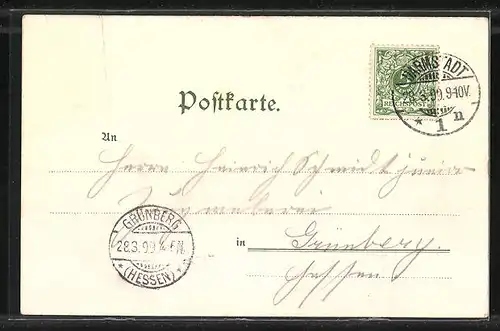 DARMSTADT
28.3.99.9-10V.
* 1 n
REICHSPOST
Postkarte.
An
Herrn Heinrich Schmidt junior
GRÜNBERG
28.3.99
* (HESSEN) *
in Grünberg.
Hessen